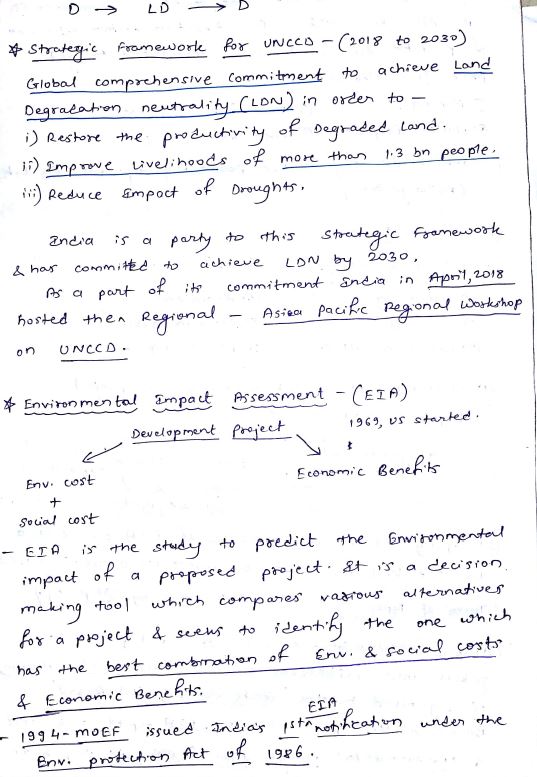 D → LD → D
* Strategic Framework for UNCCD - (2018 to 2030)
Global comprehensive commitment to achieve Land
Degradation neutrality (LDN) in order to -
i) Restore the productivity of Degraded Land.
ii) Improve Livelihoods of more than 1.3 bn people.
iii) Reduce Impact of Droughts.
India is a party to this Strategic Framework
& has committed to achieve LDN by 2030.
As a part of its commitment India in April, 2018
hosted then Regional - Asia Pacific Regional Workshop
on UNCCD.
* Environmental Impact Assessment - (EIA)
1969, US started.
Development Project
Env. cost
+
Social cost
Economic Benefits
- EIA is the study to predict the Environmental
impact of a proposed project. It is a decision
making tool which compares various alternatives
for a project & seeks to identify the one which
has the best combination of Env. & Social costs
& Economic Benefits.
- 1994 - MOEF issued India's 1st EIA notification under the
Env. protection Act of 1986.